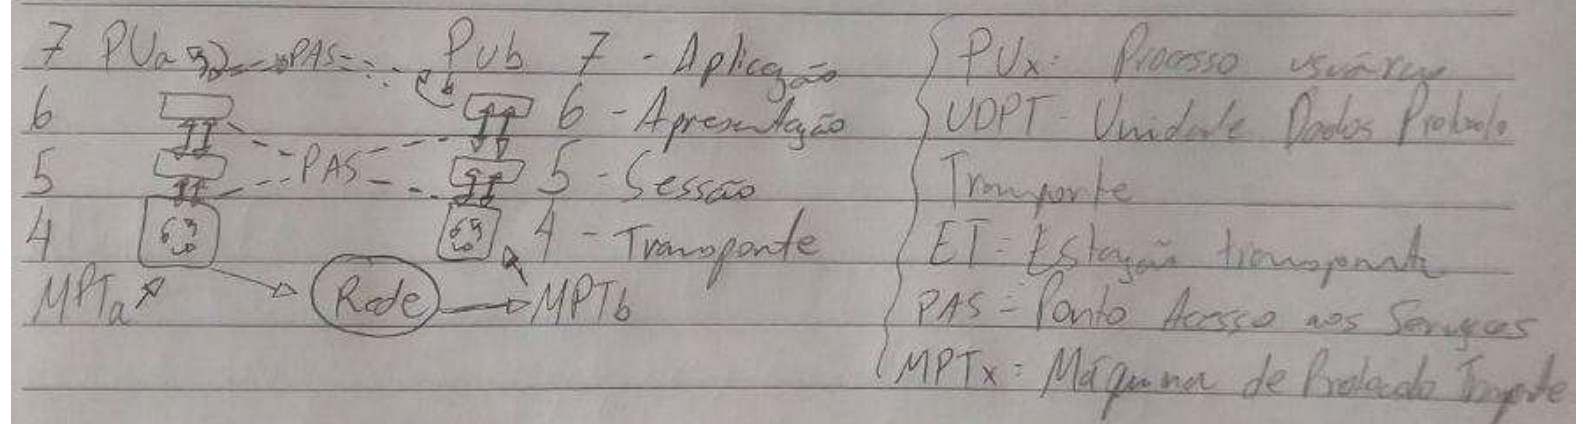 7 PUa PAS PUb 7 - Aplicação
6 6 - Apresentação
PAS
5 5 - Sessão
4 4 - Transporte
MPTa Rede MPTb
PUx: Processo usuário
UDPT - Unidade Dados Protocolo
Transporte
ET = Estação transporte
PAS = Ponto Acesso aos Serviços
MPTx: Máquina de Protocolo Transporte